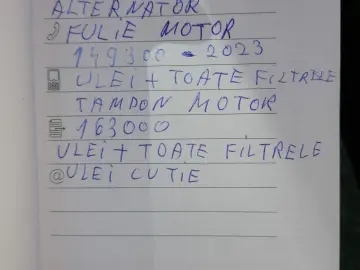 ALTERNATOR
FULiE MOTOR
149300 - 2023
ULEi + TOATE FiLTRELE
TAMPON MOTOR
163000
ULEi + TOATE FiLTRELE
@ULEi CUTiE